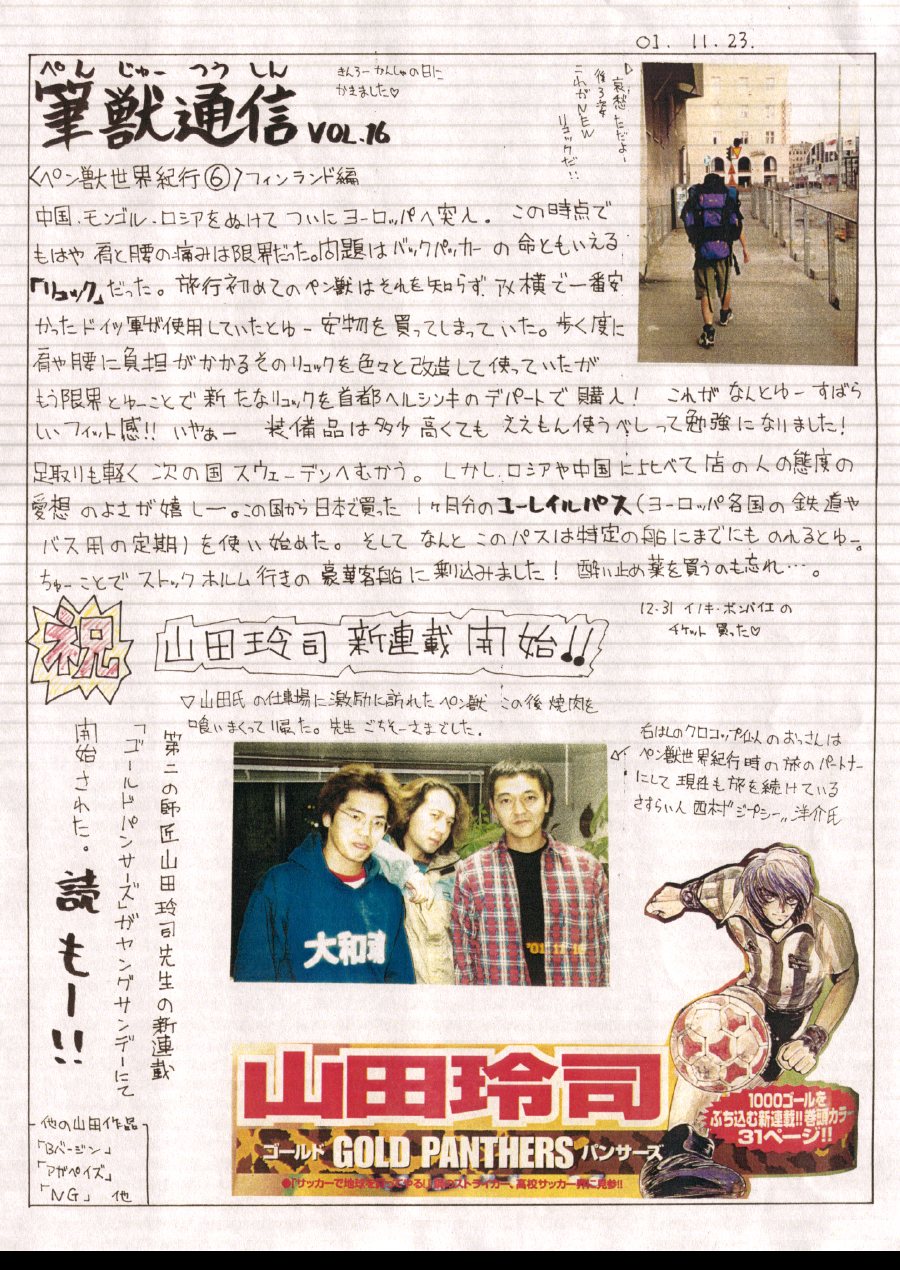 01. 11. 23.
ぺん じゅー つう しん
筆獣通信 VOL.16
きんろーかんしゃの日に
かきました♡
哀愁ただよー
後ろ姿
これがNEW
リュックだ!!
〈ペン獣世界紀行⑥〉フィンランド編
中国・モンゴル・ロシアをぬけて ついに ヨーロッパへ突入。 この時点で
もはや 肩と腰の痛みは限界だった。問題はバックパッカーの命ともいえる
「リュック」だった。旅行初めてのペン獣はそれを知らず、アメ横で一番安
かったドイツ軍が使用していたとゆー安物を買ってしまっていた。歩く度に
肩や腰に負担がかかるそのリュックを色々と改造して使っていたが
もう限界とゆーことで新たなリュックを首都ヘルシンキのデパートで購入! これが なんとゆー すばら
しいフィット感!! いやぁー 装備品は多少高くても ええもん使うべしって勉強になりました!
足取りも軽く次の国スウェーデンへむかう。しかし、ロシアや中国に比べて店の人の態度の
愛想のよさが嬉しー。この国から日本で買った1ヶ月分のユーレイルパス(ヨーロッパ各国の鉄道や
バス用の定期)を使い始めた。そしてなんとこのパスは特定の船にまでにものれるとゆー。
ちゅーことでストックホルム行きの豪華客船に乗込みました! 酔い止め薬を買うのも忘れ…。
12.31 イノキ・ボンバイエの
チケット 買った♡
祝
山田玲司 新連載開始!!
▽山田氏の仕事場に激励に訪れたペン獣 この後焼肉を
喰いまくって帰った。先生ごちそーさまでした。
右はしのクロコップ似のおっさんは
ペン獣世界紀行時の旅のパートナー
にして現在も旅を続けている
さすらい人 西村"ジプシー"洋介氏
第二の師匠山田玲司先生の新連載
「ゴールドパンサーズ」がヤングサンデーにて
開始された。読もー!!
大和魂
'01 11 16
山田玲司
ゴールド GOLD PANTHERS パンサーズ
1000ゴールを
ぶち込む新連載!!巻頭カラー
31ページ!!
他の山田作品
「Bバージン」
「アガペイズ」
「NG」 他